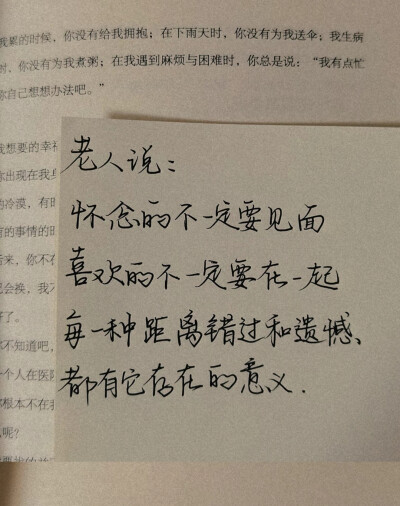 我累的时候，你没有给我拥抱；在下雨天时，你没有为我送伞；我生病
时，你没有为我煮粥；在我遇到麻烦与困难时，你总是说：“我有点忙
你自己想想办法吧。”
我想要的幸福
你出现在我
的冷漠，有
有的事情的
后来，你不在
会换，我
好了。
你不知道吧，
一个人在医
根本不在
呢？
老人说：
怀念的不一定要见面
喜欢的不一定要在一起
每一种距离错过和遗憾、
都有它存在的意义.